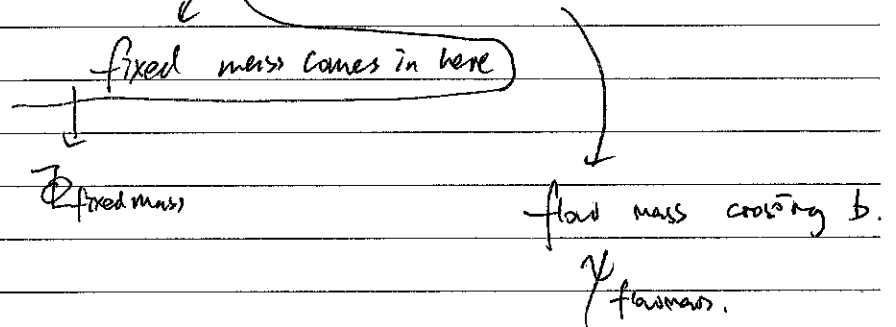 fixed mass comes in here
Φ fixed mass
flow mass crossing b.
ψ flowmass.